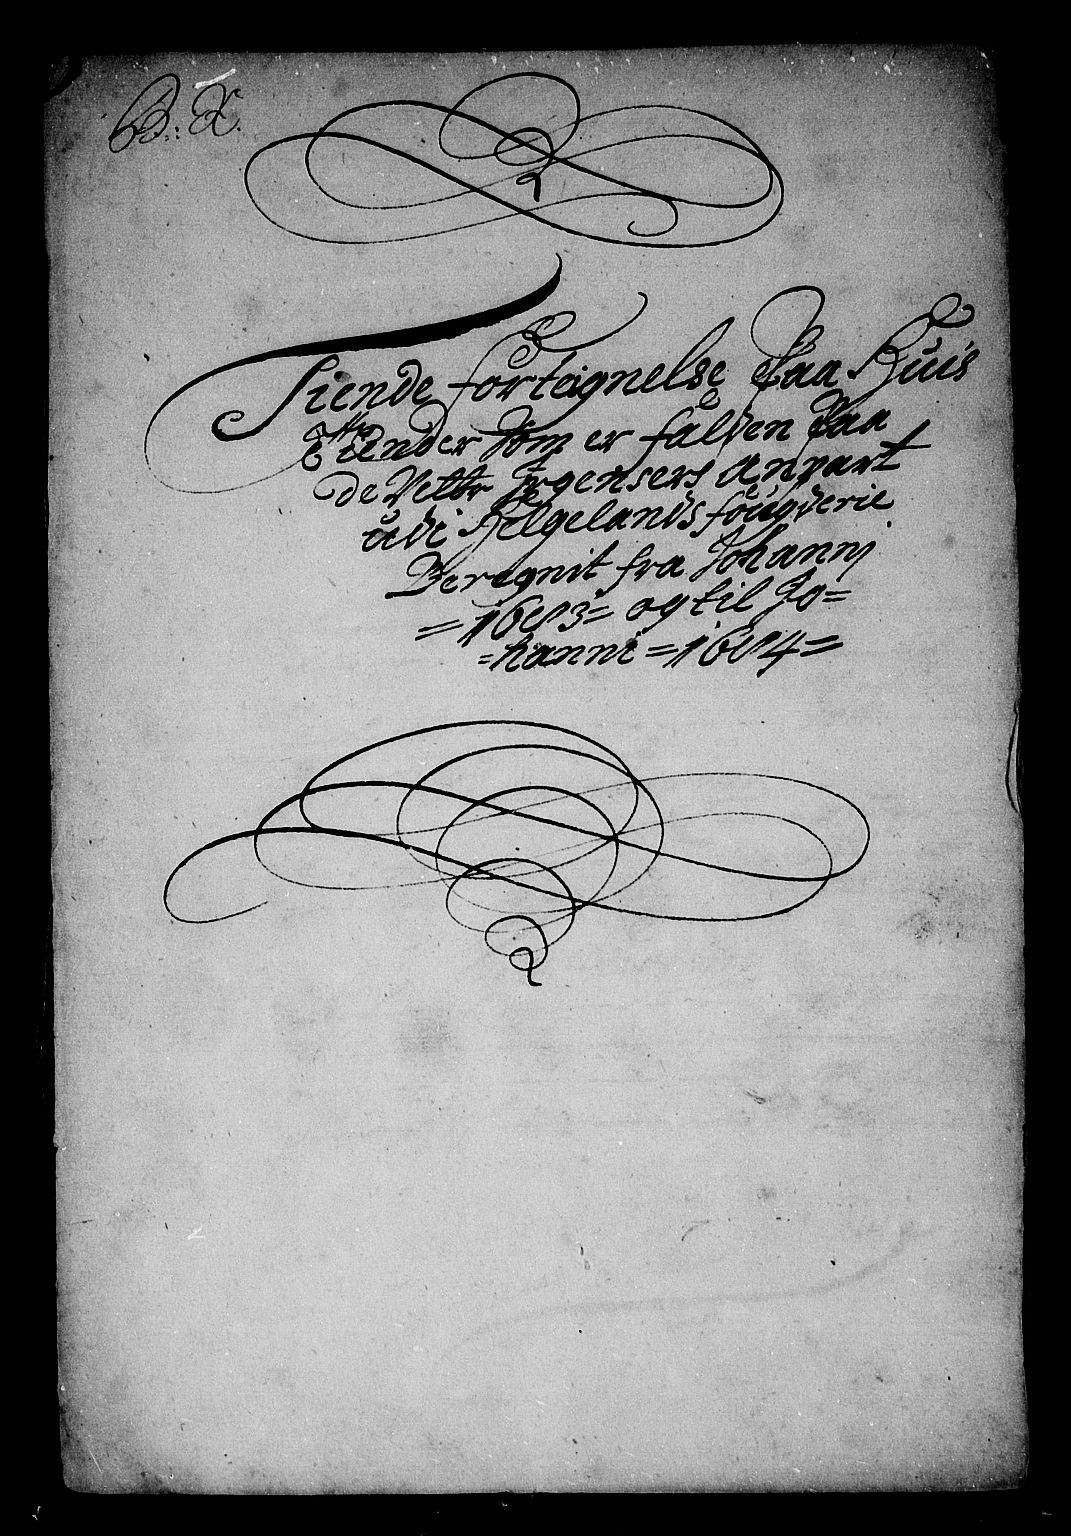 B: X.
Tiende forteignelse Paa Huis
Tiender Som er falden Paa
de Vettr Jrgensers anpart
udi Helgelands fougderie
Beregnit fra Johanni
= 1683 = og til Jo=
=hanni = 1684 =